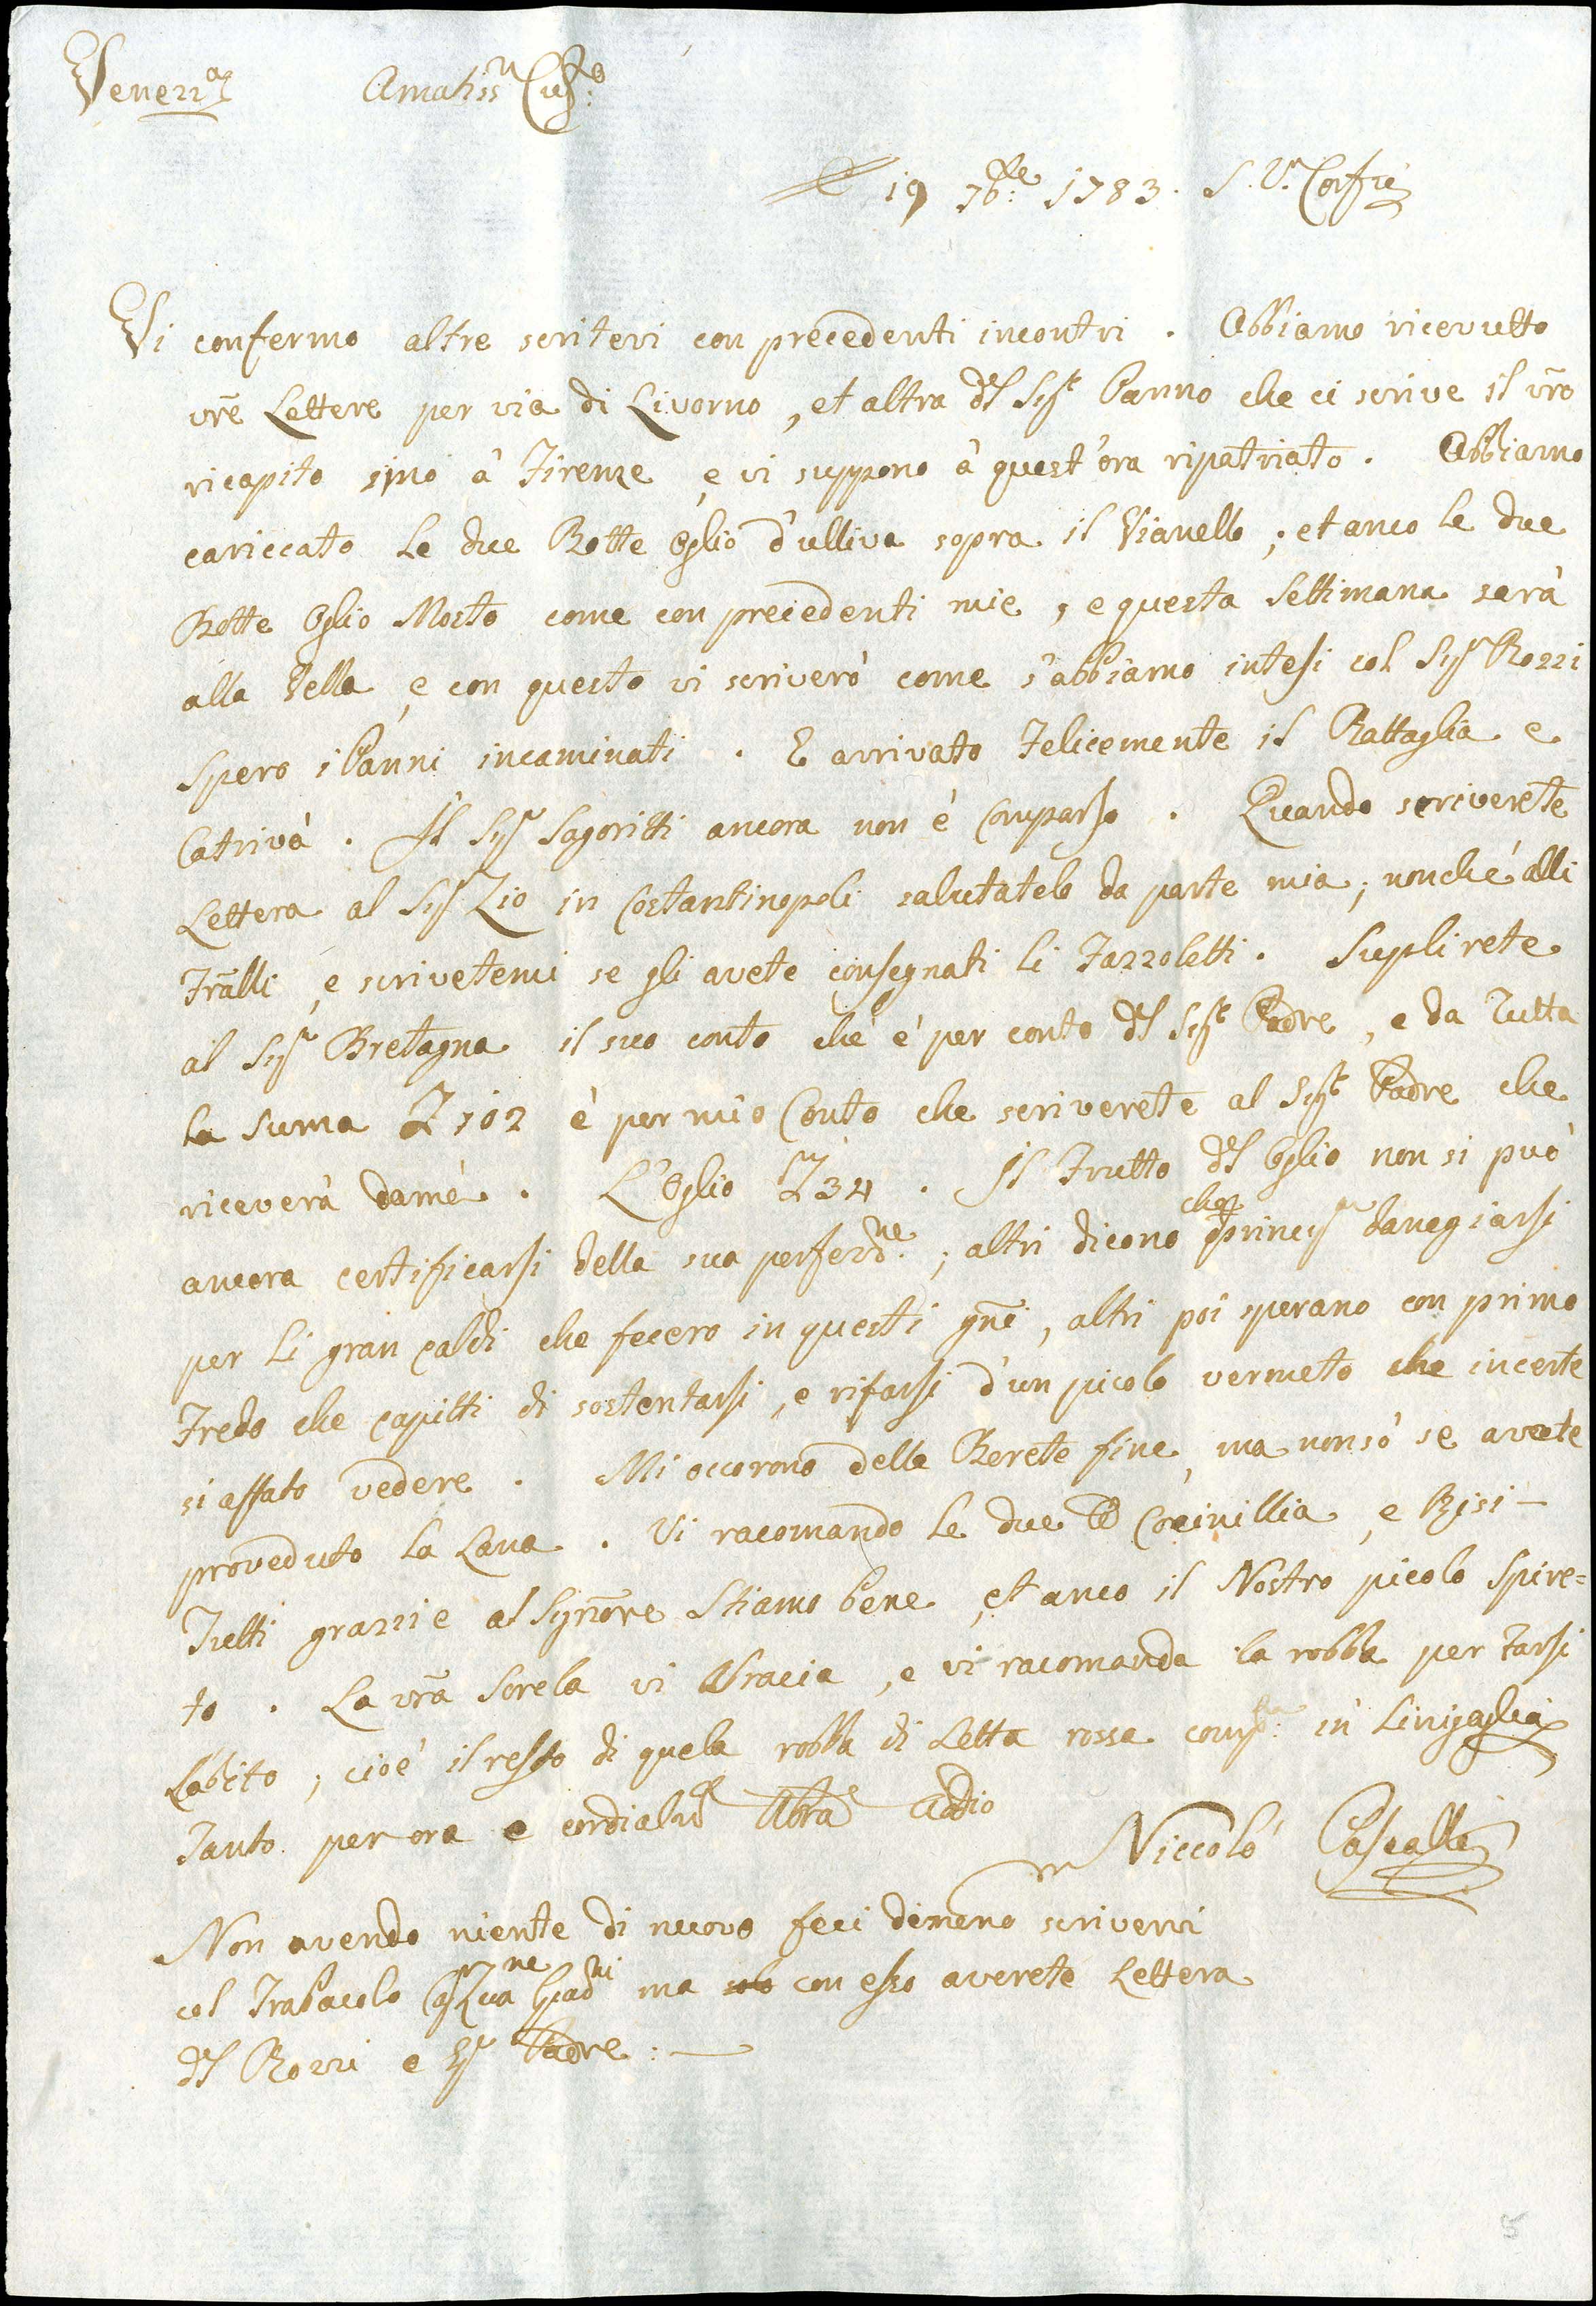 Venezia Amatiss.o Cug.o
19 7bre 1783. S.V. Corfù
Vi confermo altre scritevi con precedenti incontri. Abbiamo ricevutto
vre Lettere per via di Livorno, et altra del Sigr Panno che ci scrive il vro
ricapito sino à Firenze, e vi suppono à quest'ora ripatriato. Abbiamo
cariccato le due Botte Oglio d'ulliva sopra il Vianello; et anco le due
Botte Oglio Mosto come con precedenti mie, e questa settimana sarà
alla Vella, e con questo vi scriverò come s'abbiamo intesi col Sigr Rozzi
spero i Panni incaminati. E arrivato Felicemente il Battaglia e
Catrivà. Il Sigr Sagoritti ancora non è Comparso. Quando scriverete
Lettera al Sigr Zio in Costantinopoli salutatelo da parte mia; nonché alli
Fralli, e scrivetemi se gli avete consegnati li Fazzoletti. Suplirete
al Sigr Bretagna il suo conto che è per conto del Sigr Padre, e da Tutta
la suma Z 102 è per mio Conto che scriverete al Sigr Padre che
riceverà damè. L'Oglio Z 34. Il Frutto del Oglio non si può
ancora certificarsi della sua perfezne; altri dicono che princi danegiarsi
per li gran caldi che fecero in questi gni, altri poi sperano con primo
Fredo che capitti di sostentarsi, e rifarsi d'un picolo vermeto che incerte
si affato vedere. Mi occorono delle Berete fine, ma non sò se avete
proveduto la Lana. Vi racomando le due Cocinillia, e Bisi-
Tutti grazzie al Signore Stiamo bene, et anco il Nostro picolo Spire=
to. La vra Sorela vi Abracia, e vi racomanda la robba per farsi
Labito; cioè il resto di quela robba di Letta rossa comp.a in Sinigaglia
Tanto per ora e cordialm.e Abra.e Addio
Niccolò Pascalli
Non avendo niente di nuovo feci dimeno scrivervi
col Trabacolo ma solo con esso averete Lettera
del Rozzi e Sr Padre:—
5